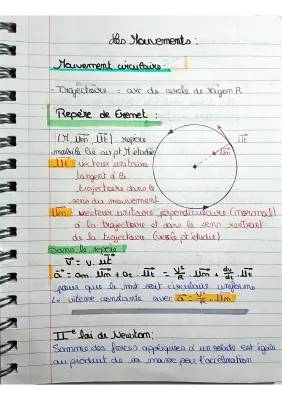 Les Mouvements :
Mouvement circulaire :
- Trajectoire = arc de cercle de rayon R
Repère de Frenet :
(M, Um, Ut) repère
mobile lié au pt M étudié
Ut : vecteur unitaire
tangent à la
trajectoire dans le
sens du mouvement
Ut
Um
Um : vecteur unitaire perpendiculaire (normal)
à la trajectoire et dans le sens rentrant
de la trajectoire
Dans le repère
V = v. Ut
a = am Um + at. Ut = V²/R . Um + dv/dt Ut
pour que le mvt soit circulaire uniforme
la vitesse constante avec a = V²/R . Um
II e loi de Newton :
Somme des forces appliquées à un solide est égale
au produit de sa masse par l'accélération